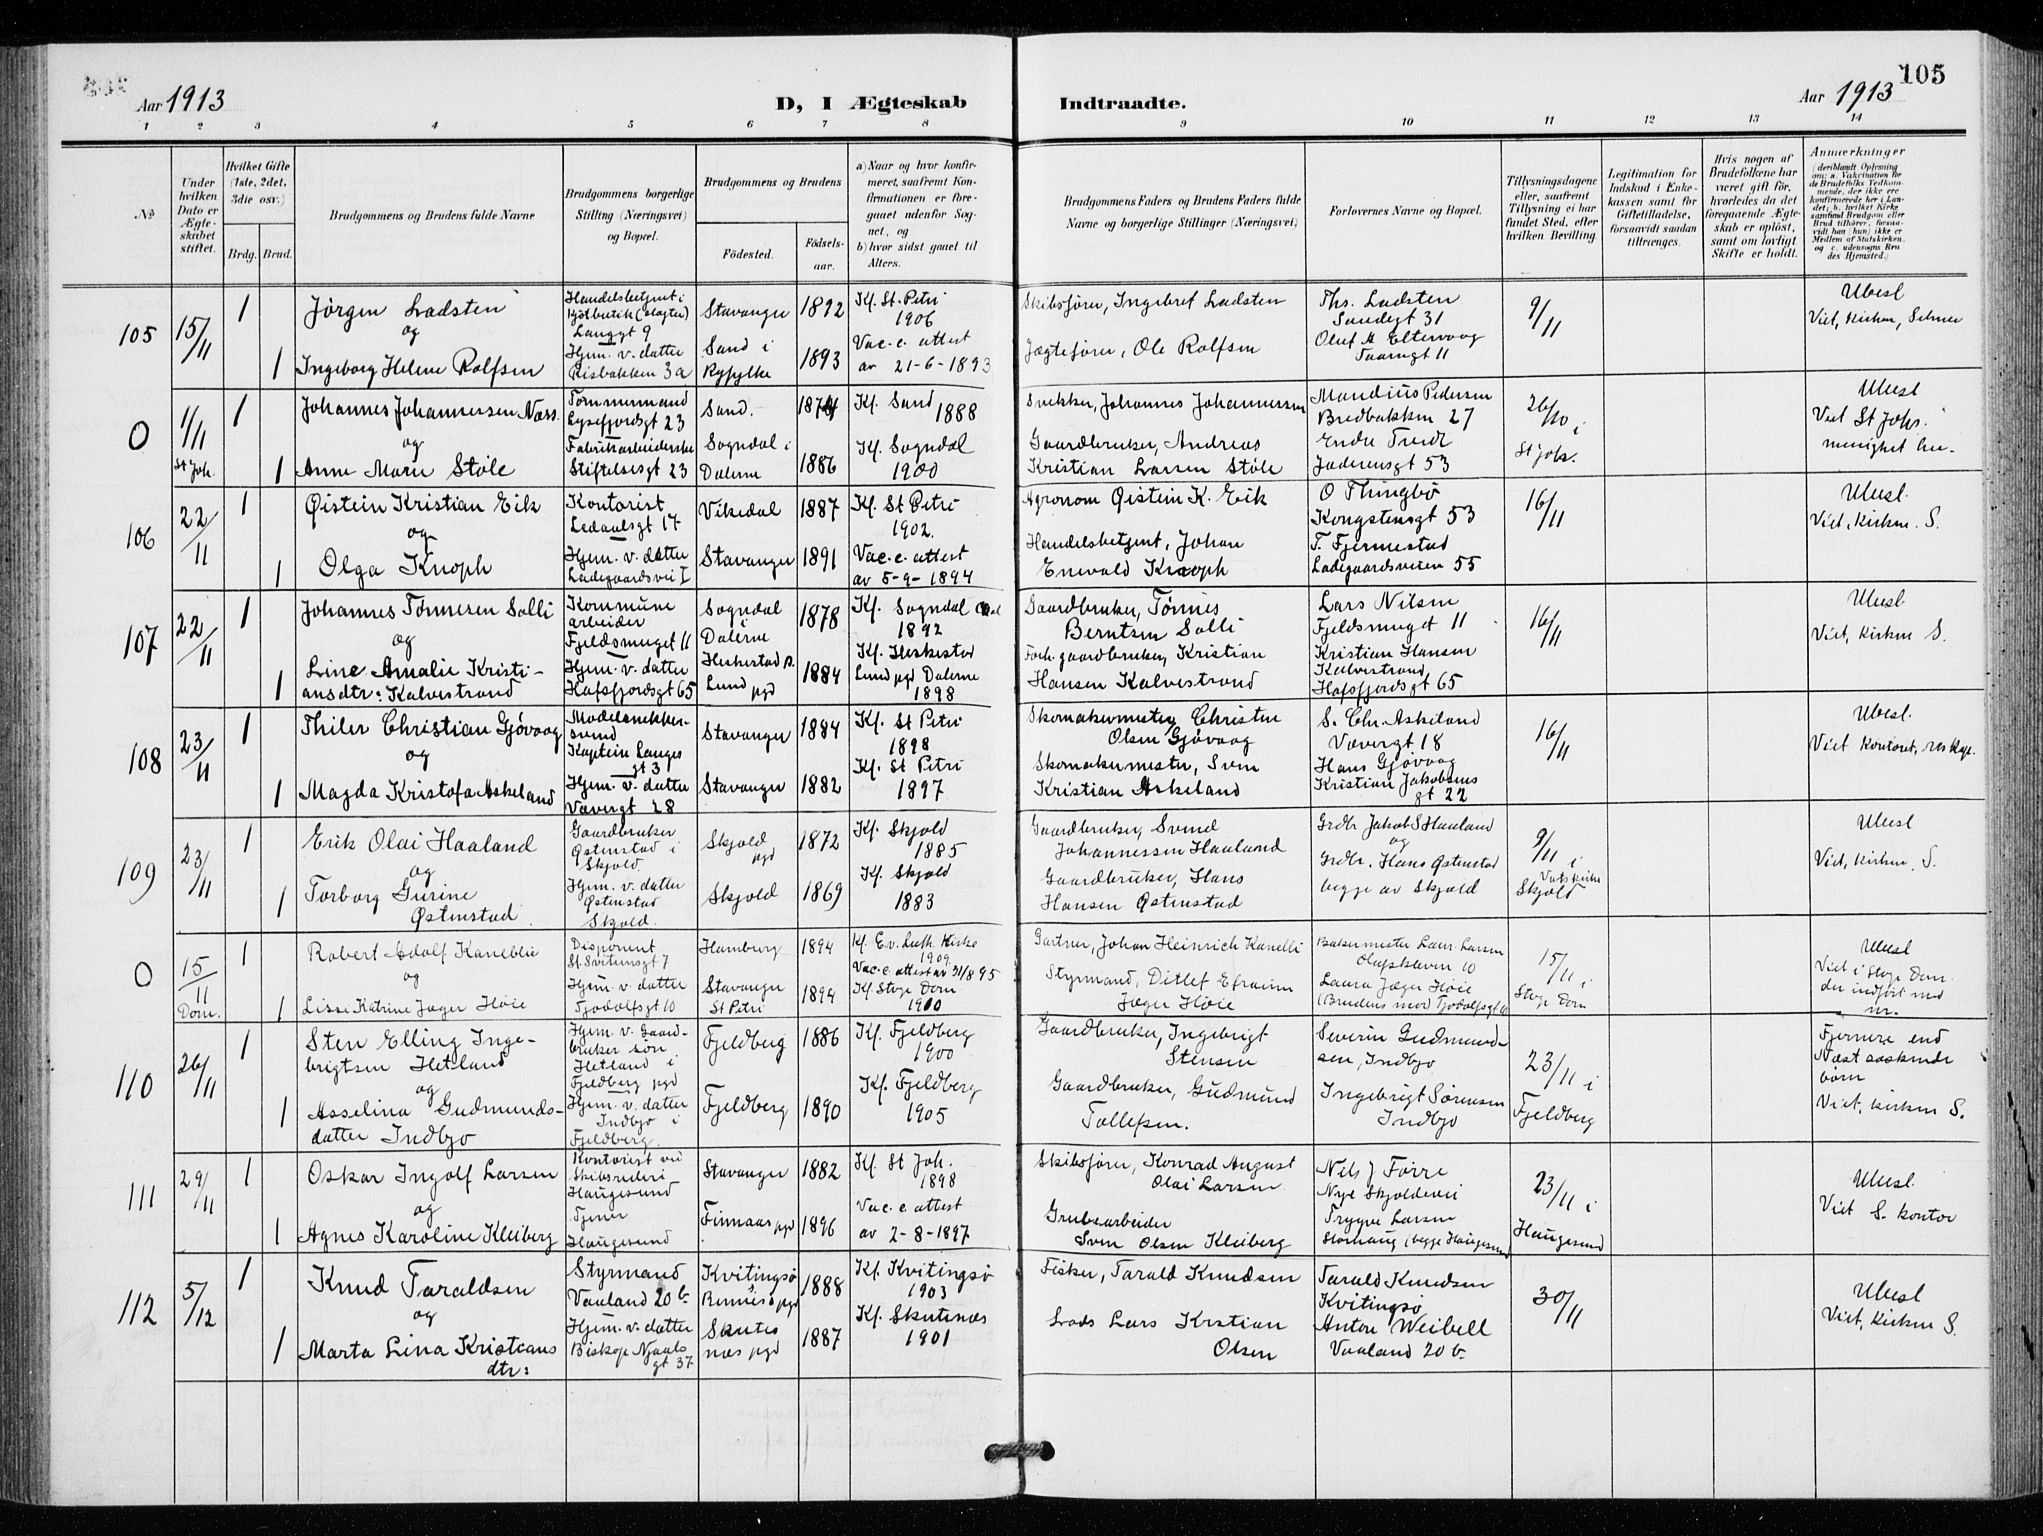 105
Aar 1913
D, I Ægteskab
Indtraadte.
Aar 1913
1 2 3 4 5 6 7 8 9 10 11 12 13 14
No
Under hvilken Dato er Ægteskabet stiftet.
Hvilket Gifte (1ste, 2det, 3die osv.)
Brdg. Brud.
Brudgommens og Brudens fulde Navne
Brudgommens borgerlige Stilling (Næringsvei) og Bopæl.
Brudgommens og Brudens
Födested.
Födselsaar.
a) Naar og hvor konfirmeret, saafremt Konfirmationen er foregaaet udenfor Sognet, og
b) hvor sidst gaaet til Alters.
Brudgommens Faders og Brudens Faders fulde Navne og borgerlige Stillinger (Næringsvei)
Forlovernes Navne og Bopæl.
Tillysningsdagene eller, saafremt Tillysning ei har fundet Sted, efter hvilken Bevilling.
Legitimation for Indskud i Enkekassen samt for Giftetilladelse, forsaavidt saadan tiltrænges.
Hvis nogen af Brudefolkene har været gift för, hvorledes da det foregaaende Ægteskab er oplöst, samt om lovligt Skifte er holdt.
Anmærkninger
105
15/11
1
Jørgen Ladsten
og
1 Ingeborg Helene Rolfsen
Handelsbetjent i
Kjøtbutik (slagter)
Langgt 9
Hjem. v. datter
Risbakken 3a
Stavanger 1892
Sand i
Ryfylke 1893
Kf. St. Petri
1906
Vac. c. attest
av 21-6-1893
Skibsfører, Ingebret Ladsten
Jægtefører, Ole Rolfsen
Ths. Ladsten
Sandegt 31
Oluf A Eltervaag
Taarngt 11
9/11
Ubesl
Viet, Kirken, Selmer
0
1/11
St Joh.
1
Johannes Johannessen Næss.
og
1 Anne Marie Støle
Tømmermand
Lysefjordsgt 23
Fabrikarbeiderske
Stiftelsesgt 23
Sand.
Sogndal i
Dalerne 1886
Kf. Sand
1888
Kf. Sogndal
1900
Snekker, Johannes Johannessen
Gaardbruker, Andreas
Kristian Larsen Støle
Mandius Pedersen
Bredbakken 27
Endre Tveit
Jaderensgt 53
26/10 i
St Joh.
Ubesl
Viet St Johs.
menighet her.
106
22/11
1
Øistein Kristian Eik
og
1 Olga Knoph
Kontorist
Ledaalsgt 17
Hjem. v. datter
Ladegaardsvei I
Vikedal 1887
Stavanger 1891
Kf. St Petri
1902.
Vac. c. attest
av 5-9-1894
Agronom Øistein K. Eik
Handelsbetjent, Johan
Enevald Knoph
O Thingbø
Kongstensgt 53
T. Fjermestad
Ladegaardsveien 55
16/11
Ubesl.
Viet, Kirken. S.
107
22/11
1
Johannes Tønnesen Solli
og
1 Line Amalie Kristiansdtr: Kalvestrand
Kommune
arbeider
Fjeldsmuget 11
Hjem. v. datter
Hafsfjordsgt 65
Sogndal
i
Dalerne 1878
Heskestad s.
Lund pgd 1884
Kf. Sogndal
1892
Kf. Heskestad
Lund pgd Dalerne
1898
Gaardbruker, Tønnes
Berntsen Solli
Forh. gaardbruker, Kristian
Hansen Kalvestrand
Lars Nilsen
Fjeldsmuget 11
Kristian Hansen
Kalvestrand
Hafsfjordsgt 65
16/11
Ubesl
Viet, Kirken S.
108
23/11
1
Thiler Christian Gjøvaag
og
1 Magda Kristofa Askeland
Modelsnekkersvend
Kaptein Langes
gt 3
Hjem. v. datter
Vævergt 28
Stavanger 1884
Stavanger 1882
Kf. St Petri
1898
Kf. St Petri
1897
Skomakermester, Christen
Olsen Gjøvaag
Skomakermester, Sven
Kristian Askeland
S. Chr. Askeland
Vævergt 18
Hans Gjøvaag
Kristian Jakobsens
gt 22
16/11
Ubesl.
Viet Kontoret, res kap.
109
23/11
1
Erik Olai Haaland
og
1 Torborg Gurine
Østenstad
Gaardbruker
Østenstad i
Skjold
Hjem. v. datter
Østenstad
Skjold.
Skjold
pgd 1872
Skjold 1869
Kf. Skjold
1885
Kf. Skjold
1883
Gaardbruker, Svend
Johannessen Haaland
Gaardbruker, Hans
Hansen Østenstad
Grdbr Jakob S Haaland
og
Grdbr. Hans Østenstad
begge av Skjold
9/11 i
Vatskirke
Skjold
Ubesl
Viet, Kirken. S.
0
15/11
Dom.
1
Robert Adolf Kaneblie
og
1 Lisse Katrine Jæger Høie
Disponent
St. Svitunsgt 7
Hjem. v. datter
Tjodolfsgt 10
Hamburg 1894
Stavanger
St Petri 1894
Kf. Ev. Luth. Kirke
1909.
Vac. c. attest av 31/8 95
Kf. Stvgr Dom
1910
Gartner, Johan Heinrich Kanelli
Styrmand, Ditlef Efraim
Jæger Høie
Bakermester Laur. Larsen
Olafskleven 10
Laura Jæger Høie
(Brudens mor) Tjodolfsgt 10
15/11 i
Stvgr Dom
Ubesl
Viet i Stvgr Dom.
der indført med
nr.
110
26/11
1
Sten Elling Ingebrigtsen Hetland
og
1 Asselina Gudmundsdatter Indbjo
Hjem. v. Gaardbruker søn
Hetland i
Fjeldberg pgd
Hjem. v. datter
Indbjo i
Fjeldberg.
Fjeldberg 1886
Fjeldberg 1890
Kf. Fjeldberg
1900
Kf. Fjeldberg
1905
Gaardbruker, Ingebrigt
Stensen
Gaardbruker, Gudmund
Tollefsen.
Severin Gudmundsen, Indbjo
Ingebrigt Sørensen
Indbjo
23/11 i
Fjeldberg
Fjernere end
Næst søskende
børn
Viet, kirken S.
111
29/11
1
Oskar Ingolf Larsen
og
1 Agnes Karoline Kleiberg
Kontorist ved
Skibsrederi
Haugesund
Tjener
Haugesund
Stavanger 1882
Finnaas pgd 1896
Kf. St Joh.
1898
Vac. c. attest
av 2-8-1897
Skibsfører, Konrad August
Olai Larsen
Grubearbeider
Sven Olsen Kleiberg
Nils J Førre
Nye Skjoldevei
Trygve Larsen
begge Haugesund
23/11 i
Haugesund
Ubesl.
Viet S. kontor
112
5/12
1
Knud Taraldsen
og
1 Marta Lina Kristians
dtr:
Styrmand
Vaaland 20 b
Hjem. v. datter
Biskop Njaals
gt 37
Kvitingsø
Rennesø pgd 1888
Skutesnæs pgd 1887
Kf. Kvitingsø
1903
Kf. Skutesnæs
1901
Fisker, Tarald Knudsen
Lods Lars Kristian
Olsen
Tarald Knudsen
Kvitingsø
Anton Weibell
Vaaland 20 b
30/11
Ubesl
Viet, Kirken S.